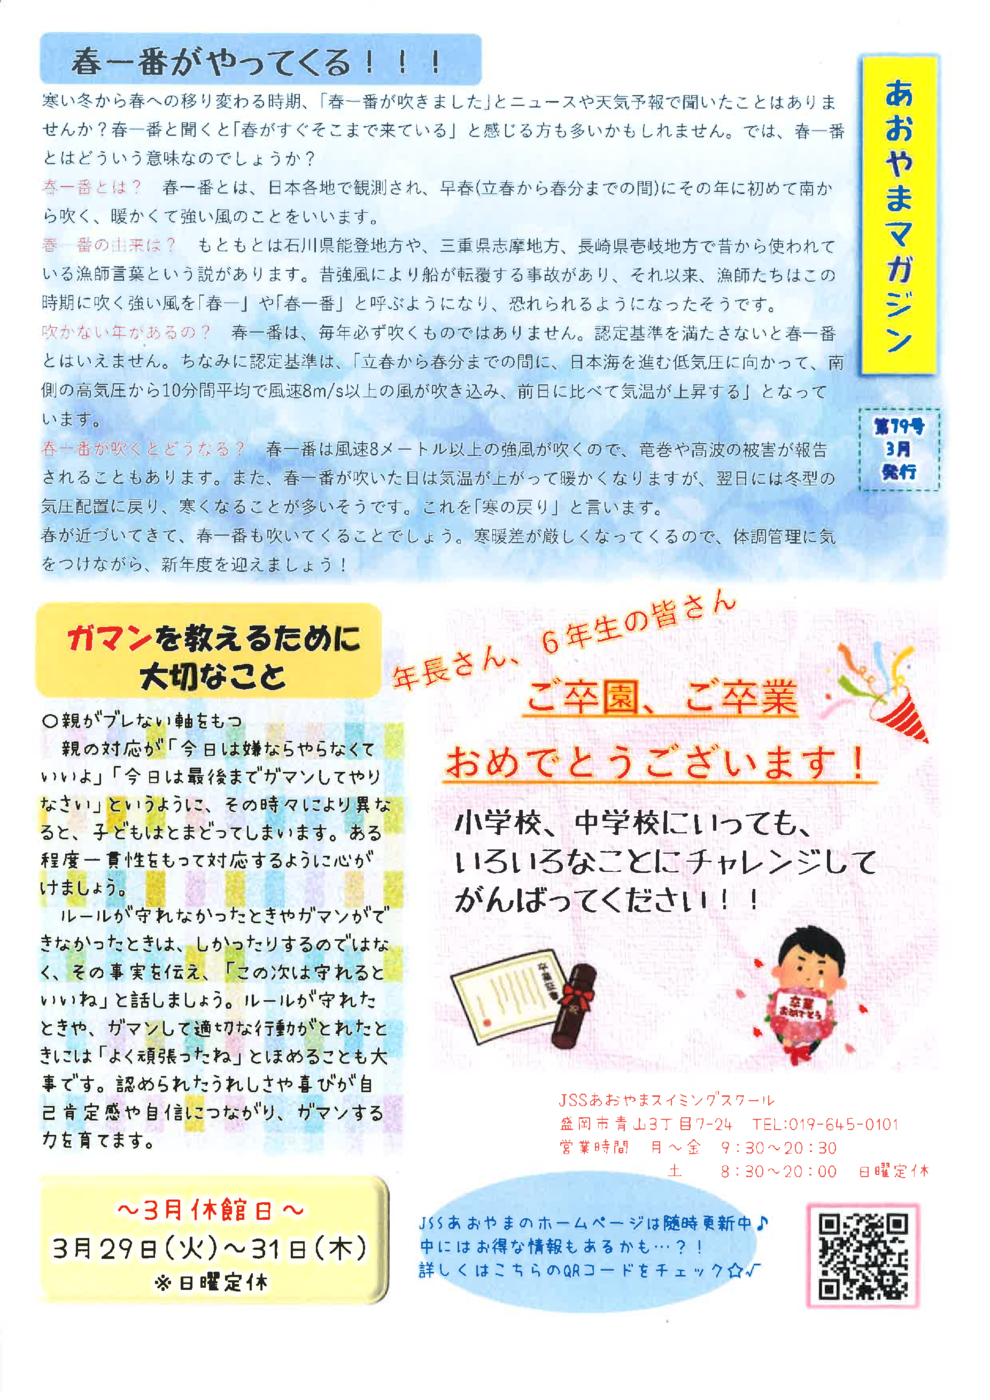 春一番がやってくる！！！
寒い冬から春への移り変わる時期、「春一番が吹きました」とニュースや天気予報で聞いたことはありま
せんか？春一番と聞くと「春がすぐそこまで来ている」と感じる方も多いかもしれません。では、春一番
とはどういう意味なのでしょうか？
春一番とは？　春一番とは、日本各地で観測され、早春(立春から春分までの間)にその年に初めて南か
ら吹く、暖かくて強い風のことをいいます。
春一番の由来は？　もともとは石川県能登地方や、三重県志摩地方、長崎県壱岐地方で昔から使われて
いる漁師言葉という説があります。昔強風により船が転覆する事故があり、それ以来、漁師たちはこの
時期に吹く強い風を「春一」や「春一番」と呼ぶようになり、恐れられるようになったそうです。
吹かない年があるの？　春一番は、毎年必ず吹くものではありません。認定基準を満たさないと春一番
とはいえません。ちなみに認定基準は、「立春から春分までの間に、日本海を進む低気圧に向かって、南
側の高気圧から10分間平均で風速8m/s以上の風が吹き込み、前日に比べて気温が上昇する」となって
います。
春一番が吹くとどうなる？　春一番は風速8メートル以上の強風が吹くので、竜巻や高波の被害が報告
されることもあります。また、春一番が吹いた日は気温が上がって暖かくなりますが、翌日には冬型の
気圧配置に戻り、寒くなることが多いそうです。これを「寒の戻り」と言います。
春が近づいてきて、春一番も吹いてくることでしょう。寒暖差が厳しくなってくるので、体調管理に気
をつけながら、新年度を迎えましょう！
あおやまマガジン
第79号
3月
発行
ガマンを教えるために
大切なこと
○親がブレない軸をもつ
　親の対応が「今日は嫌ならやらなくて
いいよ」「今日は最後までガマンしてやり
なさい」というように、その時々により異な
ると、子どもはとまどってしまいます。ある
程度一貫性をもって対応するように心が
けましょう。
　ルールが守れなかったときやガマンがで
きなかったときは、しかったりするのではな
く、その事実を伝え、「この次は守れると
いいね」と話しましょう。ルールが守れた
ときや、ガマンして適切な行動がとれたと
きには「よく頑張ったね」とほめることも大
事です。認められたうれしさや喜びが自
己肯定感や自信につながり、ガマンする
力を育てます。
年長さん、６年生の皆さん
ご卒園、ご卒業
おめでとうございます！
小学校、中学校にいっても、
いろいろなことにチャレンジして
がんばってください！！
卒業証書
祝
卒業
おめでとう
JSSあおやまスイミングスクール
盛岡市青山3丁目7-24　TEL:019-645-0101
営業時間　月～金　9:30～20:30
土　8:30～20:00　日曜定休
～3月休館日～
3月29日(火)～31日(木)
※日曜定休
JSSあおやまのホームページは随時更新中♪
中にはお得な情報もあるかも…？！
詳しくはこちらのQRコードをチェック☆√